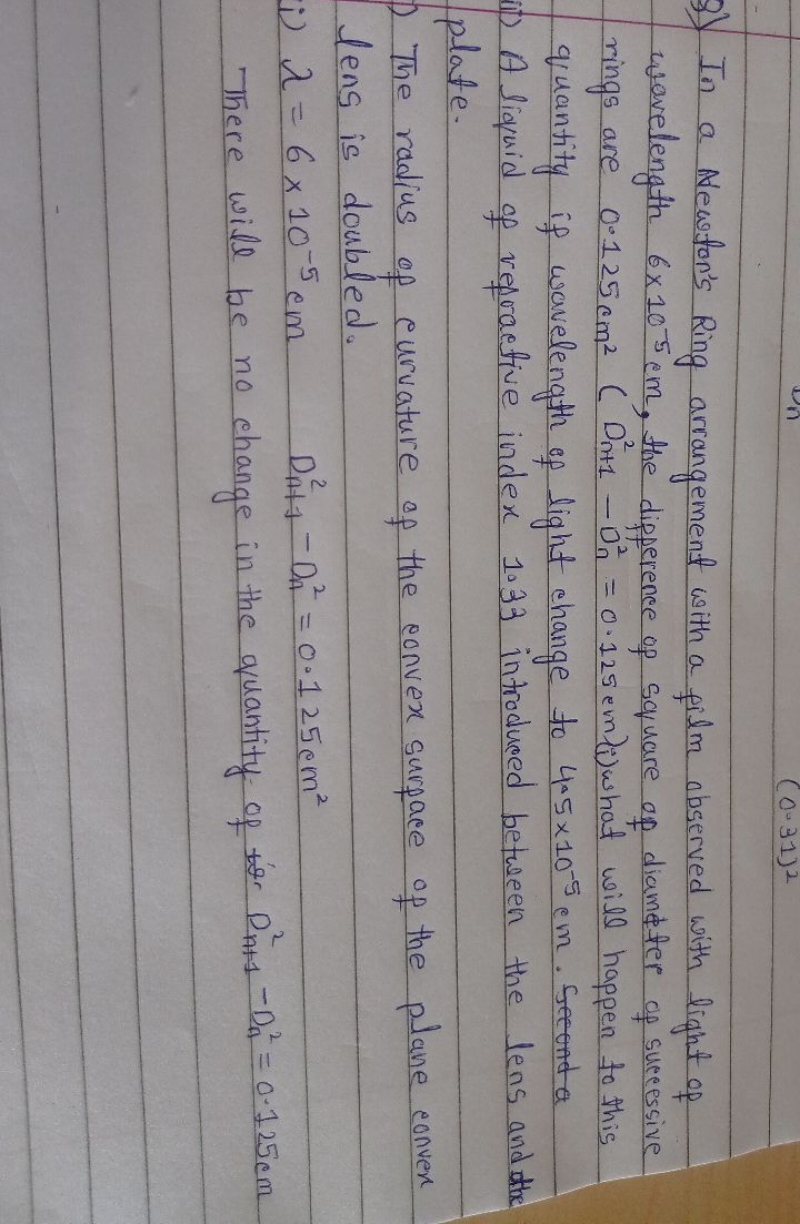 Dn
(0.31)²
9) In a Newton's Ring arrangement with a film observed with light of
wavelength 6 x 10⁻⁵ cm, the difference of square of diameter of successive
rings are 0.125 cm² (D²n+1 – D²n = 0.125 cm²) (i) what will happen to this
quantity if wavelength of light change to 4.5 x 10⁻⁵ cm. Second a
ii) A liquid of refractive index 1.33 introduced between the lens and the
plate.
) The radius of curvature of the convex surface of the plane convex
lens is doubled.
i) λ = 6 x 10⁻⁵ cm D²n+1 – Dn² = 0.125 cm²
There will be no change in the quantity of D²n+1 – Dn² = 0.125 cm